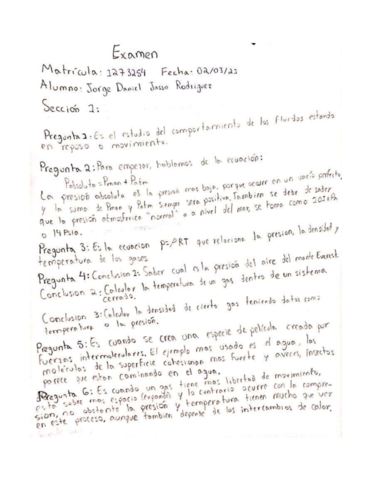 Examen
Matrícula: 1273254 Fecha: 02/03/23
Alumno: Jorge Daniel Jasso Rodriguez
Sección 1:
Pregunta 1: Es el estudio del comportamiento de los fluidos estando
en reposo o movimiento.
Pregunta 2: Para empezar, hablamos de la ecuación:
Pabsoluta = Pman + Patm
La presión absoluta es la presión mas baja, porque ocurre en un vacío perfecto,
y la suma de Pman y Patm siempre sera positiva. Tambien se debe de saber
que la presión atmosferica "normal" o a nivel del mar, se toma como
o 14 Psia.
Pregunta 3: Es la ecuacion p=ρRT que relaciona la presion, la densidad y
temperatura de los gases
Pregunta 4: Conclusion 1: Saber cual es la presión del aire del monte Everest
Conclusion 2: Calcular la temperatura de un gas dentro de un sistema
cerrado.
Conclusion 3: Calcular la densidad de cierto gas teniendo datos como
temperatura o la presión.
Pregunta 5: Es cuando se crea una especie de película creada por
fuerzas intermoleculares. El ejemplo mas usado es el agua, las
moléculas de la superficie cohesionan mas fuerte y aveces, insectos
parece que estan caminando en el agua.
Pregunta 6: Es cuando un gas tiene mas libertad de movimiento,
esto sobre mas espacio (expansión) y lo contrario ocurre con la compre-
sion, no obstante la presión y temperatura tienen mucho que ver
en este proceso, aunque tambien depende de los intercambios de calor.